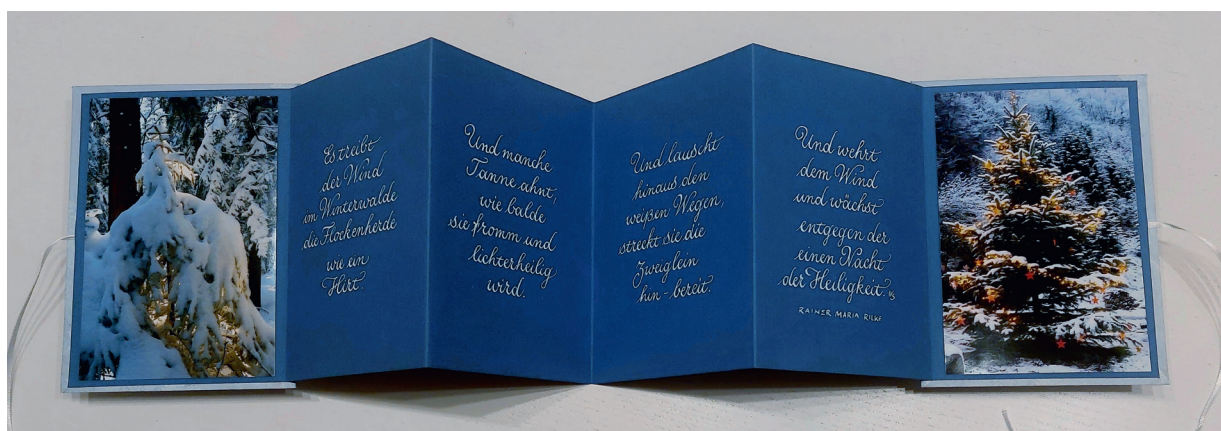 Es treibt
der Wind
im Winterwalde
die Flockenherde
wie ein
Hirt.
Und manche
Tanne ahnt,
wie balde
sie fromm und
lichterheilig
wird.
Und lauscht
hinaus den
weißen Wegen,
streckt sie die
Zweiglein
hin-, bereit.
Und wehrt
dem Wind
und wächst
entgegen der
einen Nacht
der Heiligkeit.
RAINER MARIA RILKE